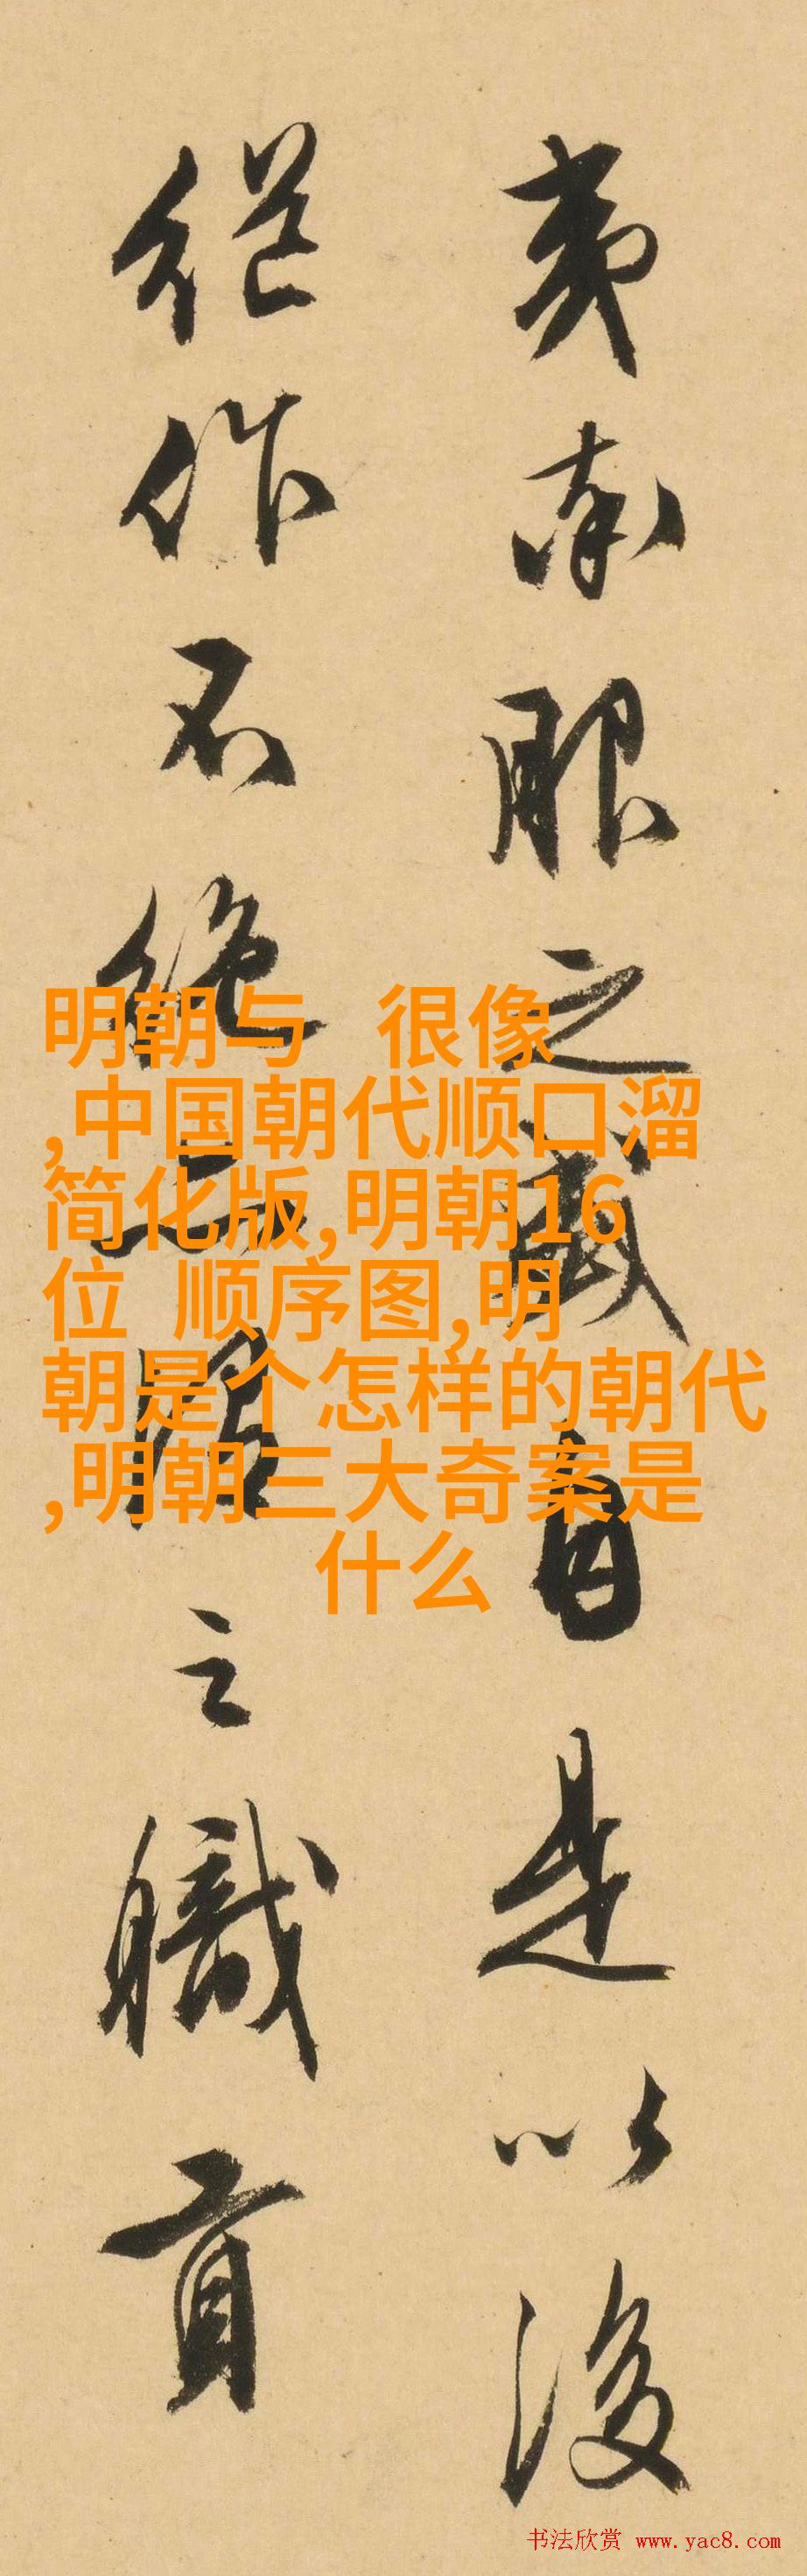 夷南服之自是以後
作不絕之職貢
明朝与 很像
,中国朝代顺口溜
简化版,明朝16
位 顺序图,明
朝是个怎样的朝代
,明朝三大奇案是
什么
书法欣赏 www.yac8.com